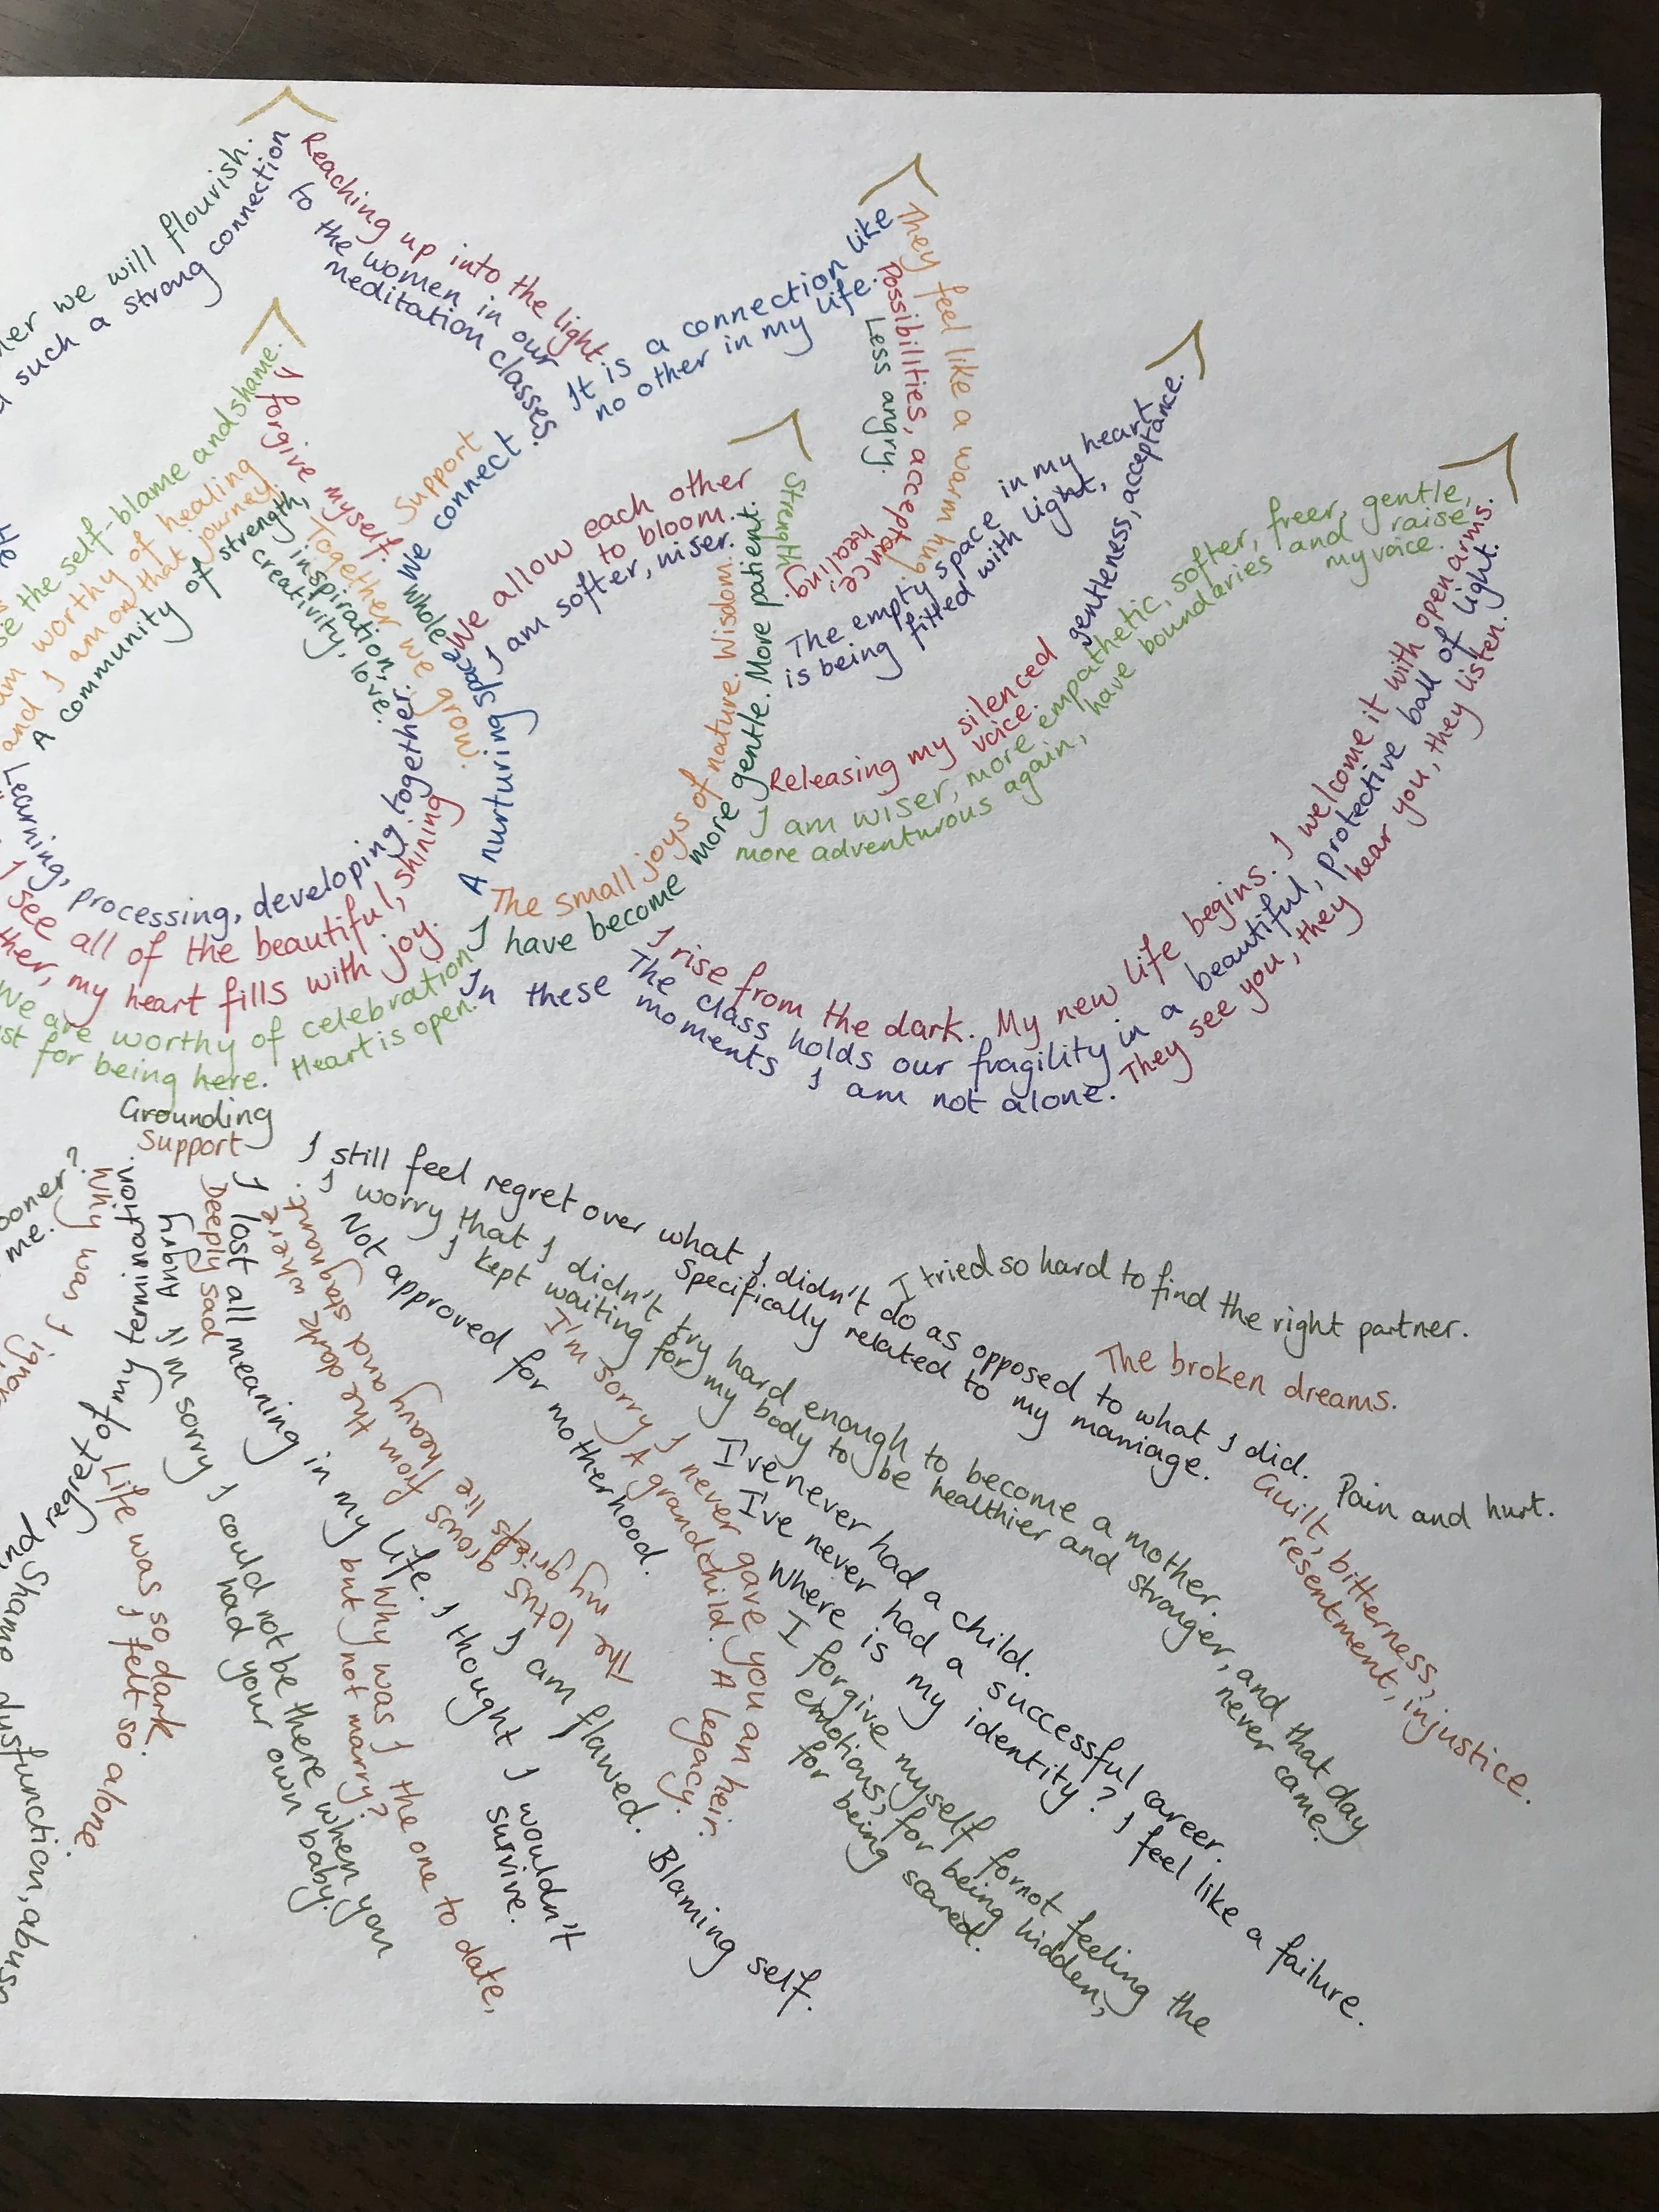 we will flourish.
such a strong connection
Reaching up into the light.
to the women in our
meditation classes.
It is a connection like
no other in my life.
They feel like a warm hug.
Possibilities, acceptance.
healing.
Less angry.
the self-blame and shame.
I forgive myself.
worthy of healing
and I am on that journey.
A community of strength,
inspiration,
creativity, love.
Together we grow.
Support
We connect.
Whole space
A nurturing
We allow each other
to bloom.
I am softer, wiser.
Strength
The small joys of nature. Wisdom.
I have become more gentle. More patient.
The empty space in my heart
is being filled with light,
gentleness, acceptance.
Releasing my silenced
voice.
I am wiser, more empathetic, softer, freer, gentle,
more adventurous again, have boundaries and raise
my voice.
I rise from the dark. My new life begins. I welcome it with open arms.
The class holds our fragility in a beautiful, protective ball of light.
In these moments I am not alone. They see you, they hear you, they listen.
Learning, processing, developing together.
I see all of the beautiful, shining
my heart fills with joy.
We are worthy of celebration
for being here. Heart is open.
Grounding
Support
I still feel regret over what I didn't do as opposed to what I did.
Specifically related to my marriage.
I tried so hard to find the right partner.
The broken dreams.
Pain and hurt.
Guilt, bitterness, injustice.
resentment,
I worry that I didn't try hard enough to become a mother.
I kept waiting for my body to be healthier and stronger, and that day
never came.
Not approved for motherhood.
I'm sorry I never gave you an heir.
A grandchild. A legacy.
I've never had a child.
I've never had a successful career.
Where is my identity? I feel like a failure.
I forgive myself for not feeling the
emotions, for being hidden,
for being scared.
The lotus grows from the dark where
my griefs lie heavy and stagnant.
I lost all meaning in my life. I thought I wouldn't
survive.
I am flawed. Blaming self.
Deeply sad
but not marry?
Why was I the one to date,
Angry
I'm sorry I could not be there when you
had your own baby.
regret of my termination.
Why was I
Life was so dark.
I felt so alone
me.
Shame
dysfunction,